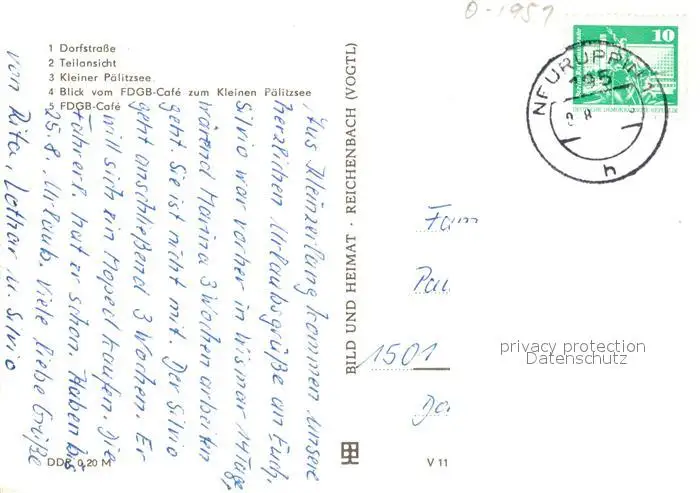 O-1951
1 Dorfstraße
2 Teilansicht
3 Kleiner Pälitzsee
4 Blick vom FDGB-Café zum Kleinen Pälitzsee
5 FDGB-Café
Aus Kleinzerlang kommen unsere
herzlichen Urlaubsgrüße an Euch.
Silvio war vorher in Wismar 14 Tage,
wärend Marina 3 Wochen arbeiten
geht. Sie ist nicht mit. Der Silvio
geht anschließend 3 Wochen. Er
will sich ein Moped kaufen. Die
Fahrerl. hat er schon. Haben bis
25.8. Urlaub. Viele liebe Grüße
von Rita, Lothar u. Silvio
DDR 0,20 M
BILD UND HEIMAT · REICHENBACH (VOGTL)
V 11
10
DEUTSCHE DEMOKRATISCHE REPUBLIK
NEURUPPIN 1
195
h
Fam
Pau
1501
privacy protection
Datenschutz